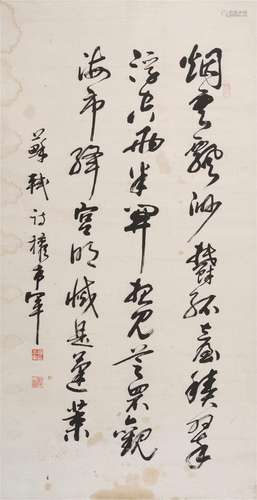 烟雲飄渺鬱孤臺積翠
浮空雨半開想見之罘觀
海市絳宮明滅是蓬萊
蘇軾詩權希軍